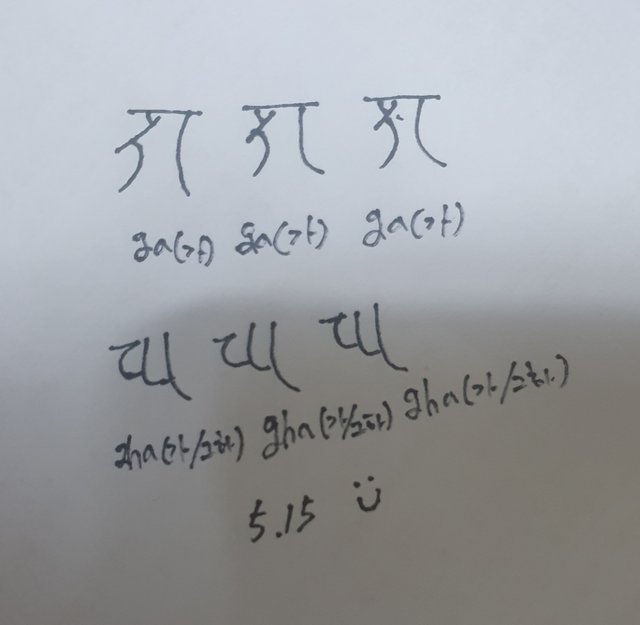 𑖐 𑖐 𑖐
ga(가) ga(가) ga(가)
𑖑 𑖑 𑖑
gha(가/그하) gha(가/그하) gha(가/그하)
5.15